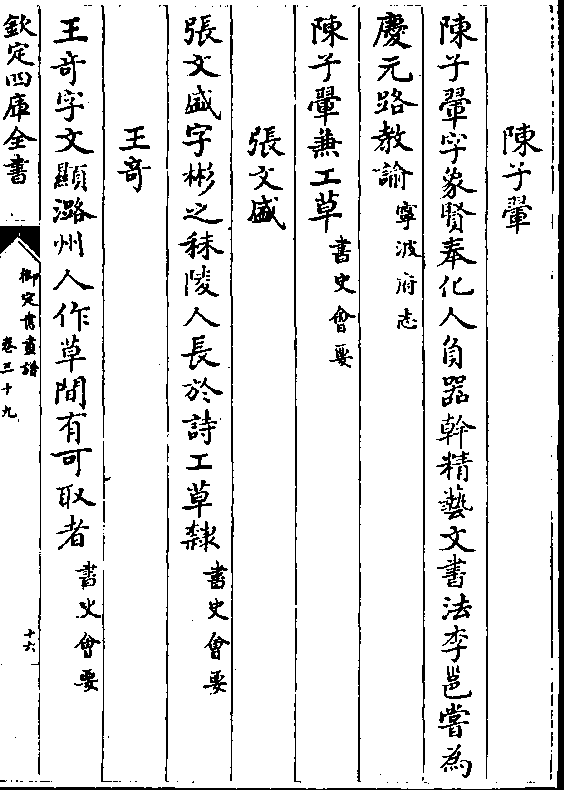 陳子翬
陳子翬字象賢奉化人負器幹精藝文書法李邕嘗為
慶元路教諭寧波府志
陳子翬兼工草書史會要
張文盛
張文盛字彬之秣陵人長於詩工草隸書史會要
王竒
王竒字文顯潞州人作草間有可取者書史會要
欽定四庫全書
御定書畫譜
卷三十九
十六